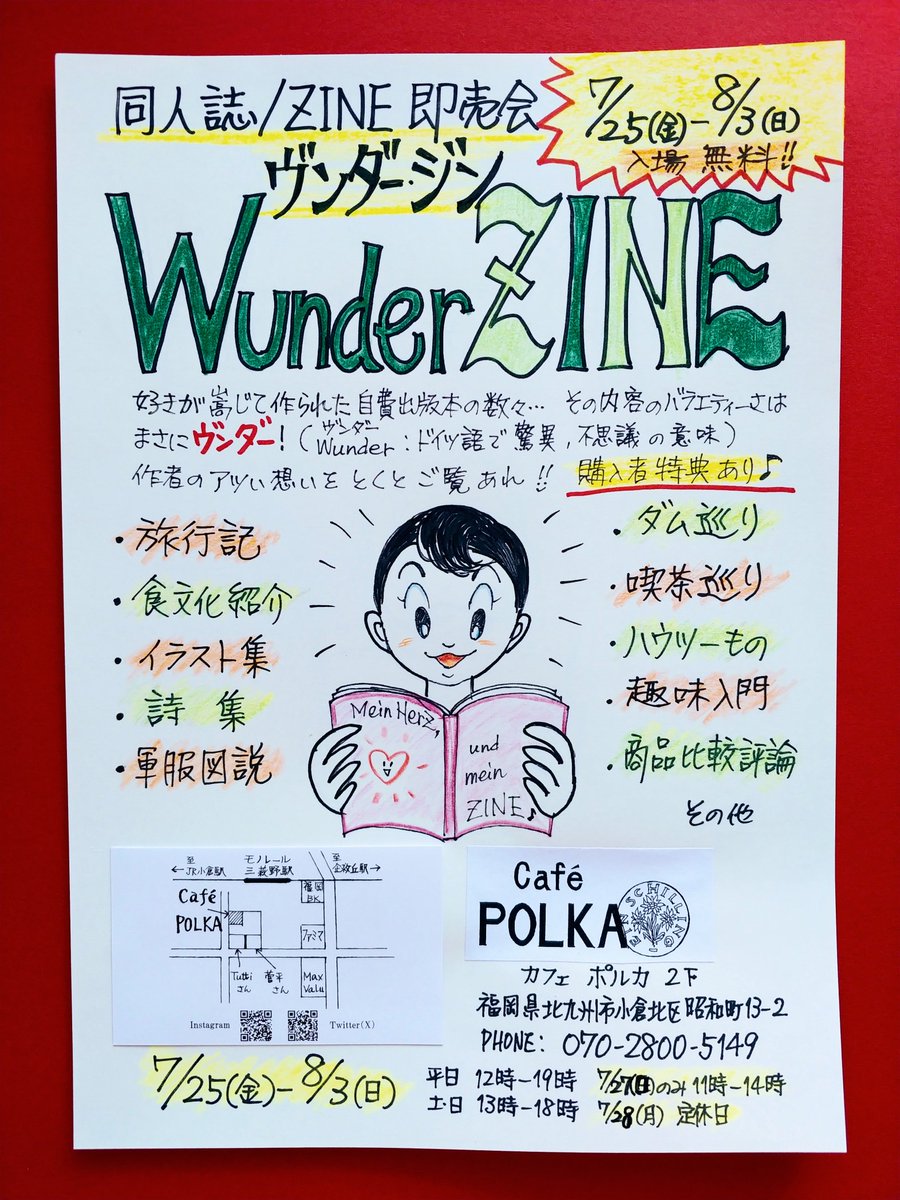 同人誌/ZINE 即売会
7/25(金)-8/3(日)
入場 無料!!
ヴンダー・ジン
WunderZINE
好きが嵩じて作られた自費出版本の数々… その内容のバラエティーさは
まさにヴンダー! (Wunder:ドイツ語で驚異,不思議の意味)
ヴンダー
作者のアツい想いを とくと ご覧あれ!! 購入者特典あり♪
・旅行記
・食文化紹介
・イラスト集
・詩集
・軍服図説
・ダム巡り
・喫茶巡り
・ハウツーもの
・趣味入門
・商品比較評論
その他
Mein Herz,
und
mein
ZINE♪
至
←JR小倉駅
モノレール
三萩野駅
至
企救丘駅→
Café
POLKA
福岡
BK
ファミマ
Tutti
さん
菅平
さん
Max
Valu
Instagram
Twitter(X)
Café
POLKA
EIN SCHILLING
カフェ ポルカ 2F
福岡県北九州市小倉北区昭和町13-2
PHONE: 070-2800-5149
7/25(金)-8/3(日)
平日 12時-19時 7/27(日)のみ11時-14時
土・日 13時-18時 7/28(月) 定休日